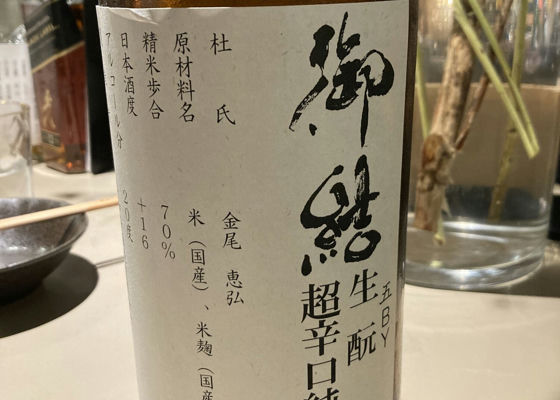 五BY
御結
生酛
超辛口純
杜氏 金尾 恵弘
原材料名 米(国産)、米麹(国産
精米歩合 70%
日本酒度 +16
アルコール分 20度